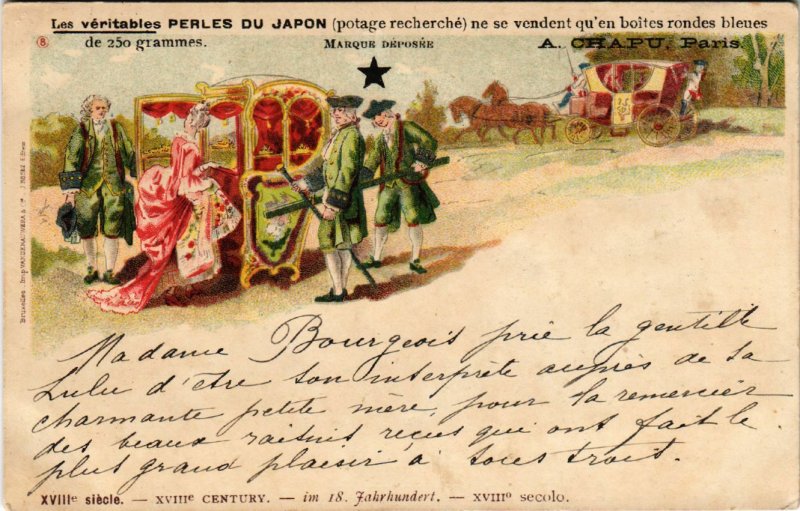 Les véritables PERLES DU JAPON (potage recherché) ne se vendent qu'en boîtes rondes bleues
de 250 grammes. MARQUE DÉPOSÉE A. CHAPU. Paris
8
Madame Bourgeois prie la gentille
Lulu d'être son interprète auprès de sa
charmante petite mère, pour la remercier
des beaux raisins reçus qui ont fait le
plus grand plaisir à tous trois.
XVIIIe siècle. — XVIIIe CENTURY. — im 18. Jahrhundert. — XVIIIo secolo.